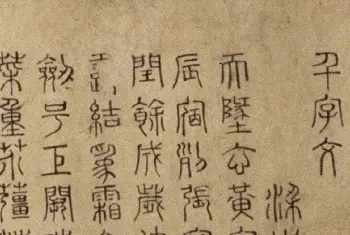 千字文
梁
天地玄黃
辰宿列張
閏餘成歲
結為霜
劍号巨闕
菜重芥薑